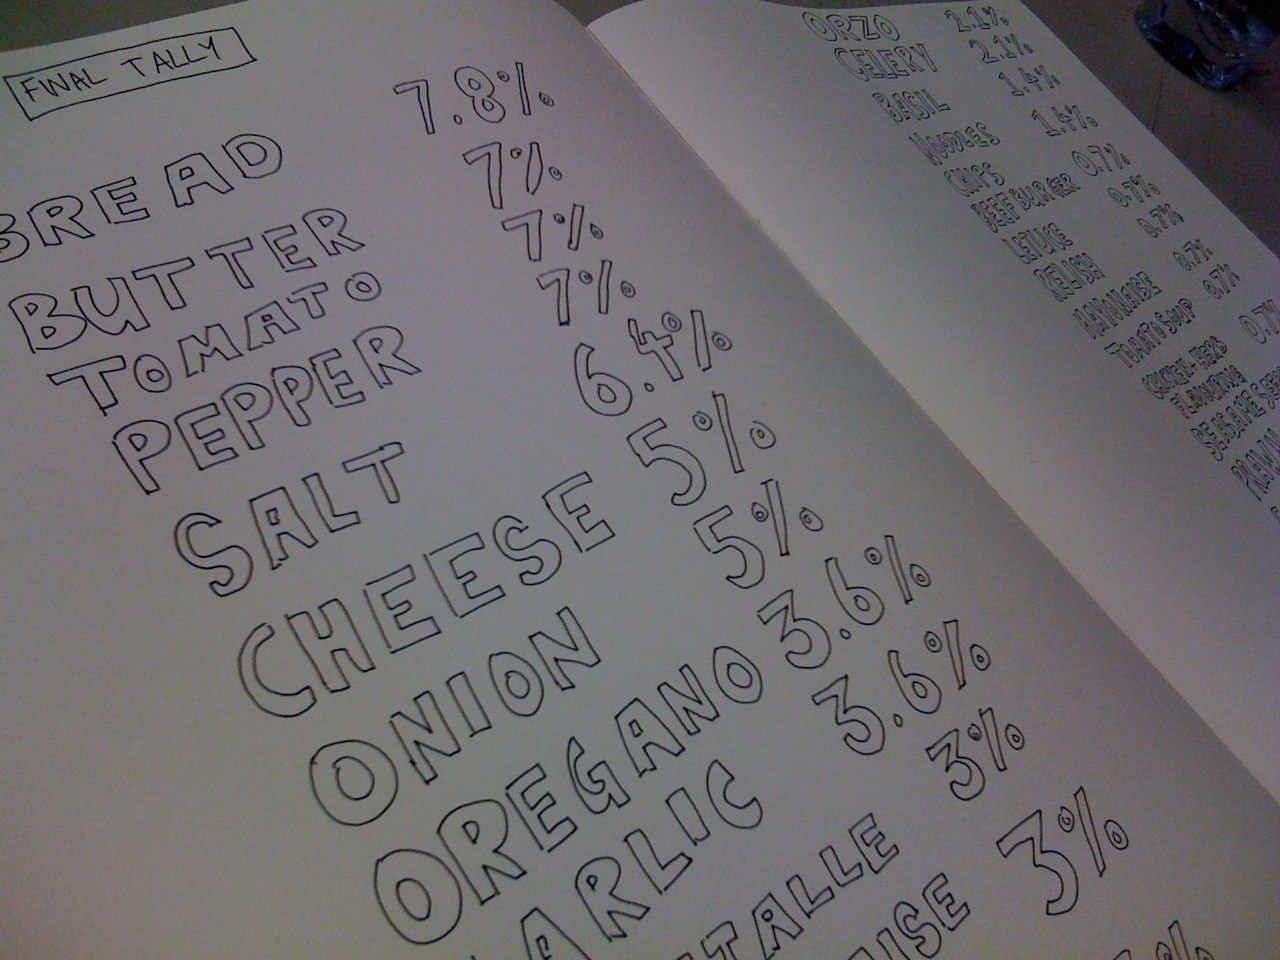 FINAL TALLY
BREAD 7.8%
BUTTER 7%
TOMATO 7%
PEPPER 7%
SALT 6.4%
CHEESE 5%
ONION 5%
OREGANO 3.6%
ARLIC 3.6%
TALLE 3%
AISE 3%
%
ORZO 2.1%
CELERY 2.1%
BASIL 1.4%
NOODLES 1.4%
CHIPS 0.7%
BEEF BURGER 0.7%
LETUCE 0.7%
RELISH 0.7%
MAYONAISE 0.7%
TOMATO SOUP 0.7%
FLAVOURING
SEASAME